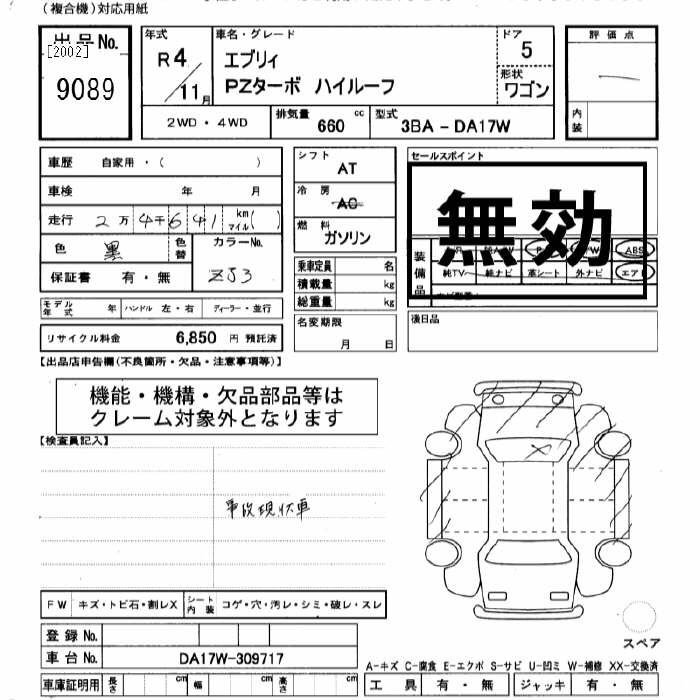 (複合機)対応用紙
出品No.
[2002]
9089
年式 R4/11月
車名・グレード
エブリィ
PZターボ ハイルーフ
ドア 5
形状 ワゴン
評価点
内装
2WD・4WD
排気量 660 cc
型式 3BA-DA17W
車歴 自家用・( )
車検 年 月
走行 2万4千641 km マイル( )
色 黒 色替 カラーNo. ZJ3
保証書 有・無
モデル年式 年 ハンドル 左・右 ディーラー・並行
リサイクル料金 6,850 円 預託済
シフト AT
冷房 AC
燃料 ガソリン
乗車定員 名
積載量 kg
総重量 kg
名変期限 月 日
セールスポイント
無効
装備品
ABS
純TV 純ナビ 革シート 外ナビ エアB
後日品
【出品店申告欄(不良箇所・欠品・注意事項等)】
機能・機構・欠品部品等は
クレーム対象外となります
【検査員記入】
事故現状車
FW キズ・トビ石・割レX シート内装 コゲ・穴・汚レ・シミ・破レ・スレ
登録No.
車台No. DA17W-309717
車庫証明用 長さ cm 幅 cm 高さ cm
スペア
A-キズ C-腐食 E-エクボ S-サビ U-凹ミ W-補修 XX-交換済
工具 有・無 ジャッキ 有・無